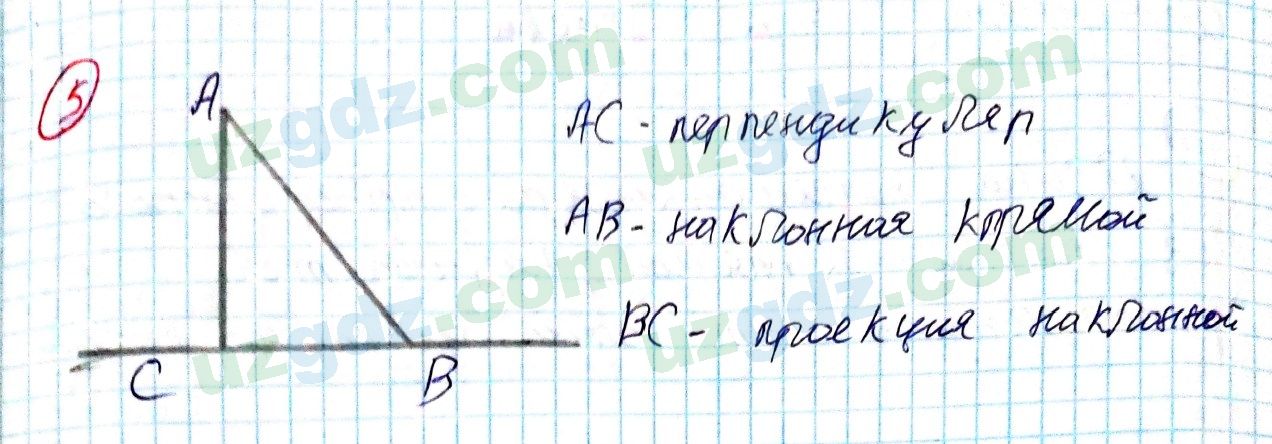 5
A
AC - перпендикуляр
AB - наклонная к прямой
BC - проекция наклонной
C B
uzgdz.com
uzgdz.com
uzgdz.com
uzgdz.com